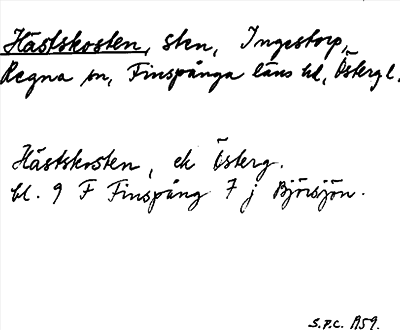 Hästskosten, sten, Ingestorp,
Regna sn, Finspånga läns hd, Östergl.
Hästskosten, ek Österg.
bl. 9 F Finspång 7 j Björsjön.
S.F.C. 1959.